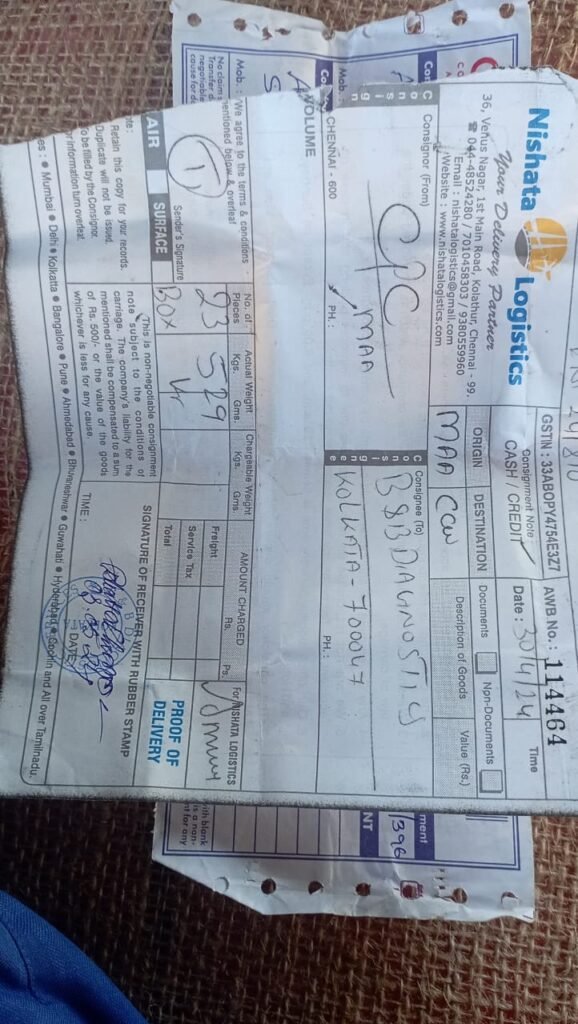 Nishata Logistics
Your Delivery Partner
36, Venus Nagar, 1st Main Road, Kolathur, Chennai - 99.
☎ 044-48524280 / 7010458303 / 9380559960
Email : nishatalogistics@gmail.com
Website : www.nishatalogistics.com
GSTIN : 33ABOPY4754E3Z7
Consignment Note
CASH / CREDIT
AWB No. : 114464
Date : 30/4/24
Time
ORIGIN
DESTINATION
Documents
Non-Documents
MAA
CCU
Description of Goods
Value (Rs.)
Consignor (From)
Consignor
CPC
MAA
CHENNAI - 600
PH. :
Consignee (To)
Consignee
KOLKATA - 700047
PH. :
VOLUME
We agree to the terms & conditions
mentioned below & overleaf
1
Sender's Signature
No. of Pieces
Actual Weight
Kgs. Gms.
Chargeable Weight
Kgs. Gms.
AMOUNT CHARGED
Rs. Ps.
23
529
Box
Freight
Service Tax
Total
For NISHATA LOGISTICS
AIR
SURFACE
This is non-negotiable consignment
note subject to the conditions of
carriage. The company's liability for the
mentioned shall be compensated to a sum
of Rs. 500/- or the value of the goods
whichever is less for any cause.
SIGNATURE OF RECEIVER WITH RUBBER STAMP
TIME :
DATE
PROOF OF
DELIVERY
Retain this copy for your records.
Duplicate will not be issued.
To be filled by the Consignor.
information turn overleaf.
Mumbai ● Delhi ● Kolkatta ● Bangalore ● Pune ● Ahmedabad ● Bhuvaneshwar ● Guwahati ● Hyderabad ● Cochin and All over Tamilnadu.
Mob. :
No claims
Transfer
negotiable
cause for
Mob.
ment
1396
NT
with blank
is a non-
nt for any